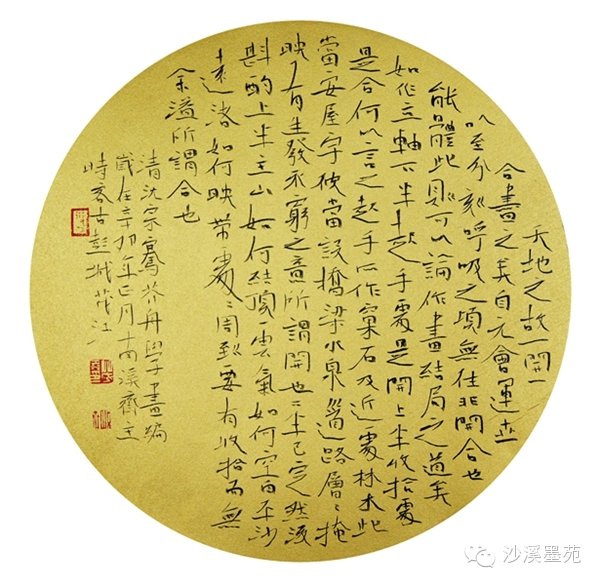 天地之故一開一
合畫之矣自元會運世
以至分刻呼吸之頃無往非開合也
能體此則可以論作畫結局之道矣
如作立軸下半起手處是開上半收拾處
是合何以言之起手所作窠石及近處林木此
當安屋宇彼當設橋梁水泉道路層〻掩
映有生發不窮之意所謂開也下半已定然後
斟酌上半主山如何結頂雲氣如何空白平沙
遠渚如何映帶處〻周到要有收拾而無
余溢所謂合也
清沈宗騫芥舟學畫編
歲在辛卯年正月十 溪齋主
時客古彭城茂江
沙溪墨苑